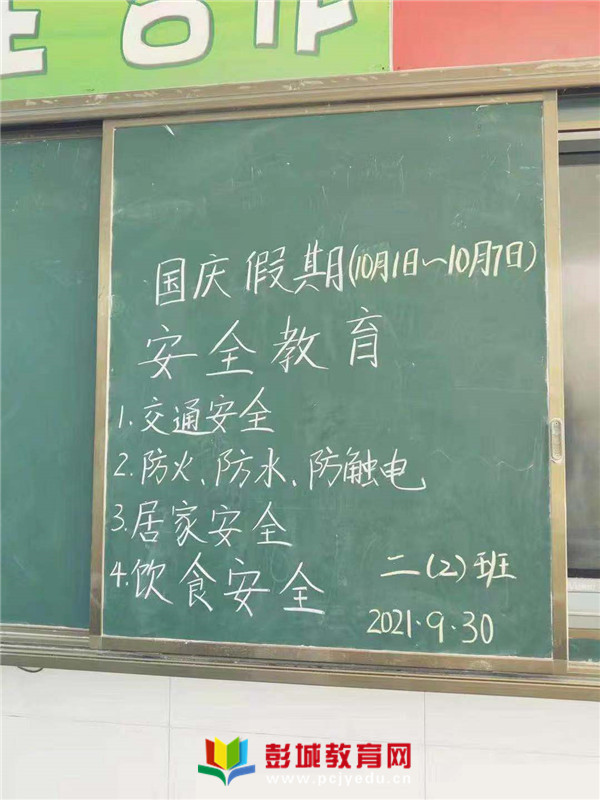 合作
国庆假期(10月1日～10月7日)
安全教育
1.交通安全
2.防火、防水、防触电
3.居家安全
4.饮食安全
二(2)班
2021.9.30
彭城教育网
www.pcjyedu.cn